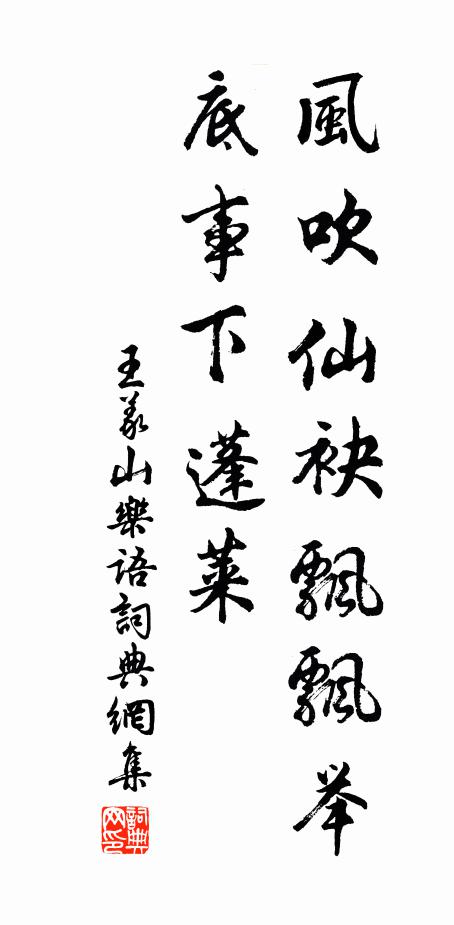 風吹仙袂飄飄举
底事下蓬莱
王义山樂語詞典網集
詞典网印